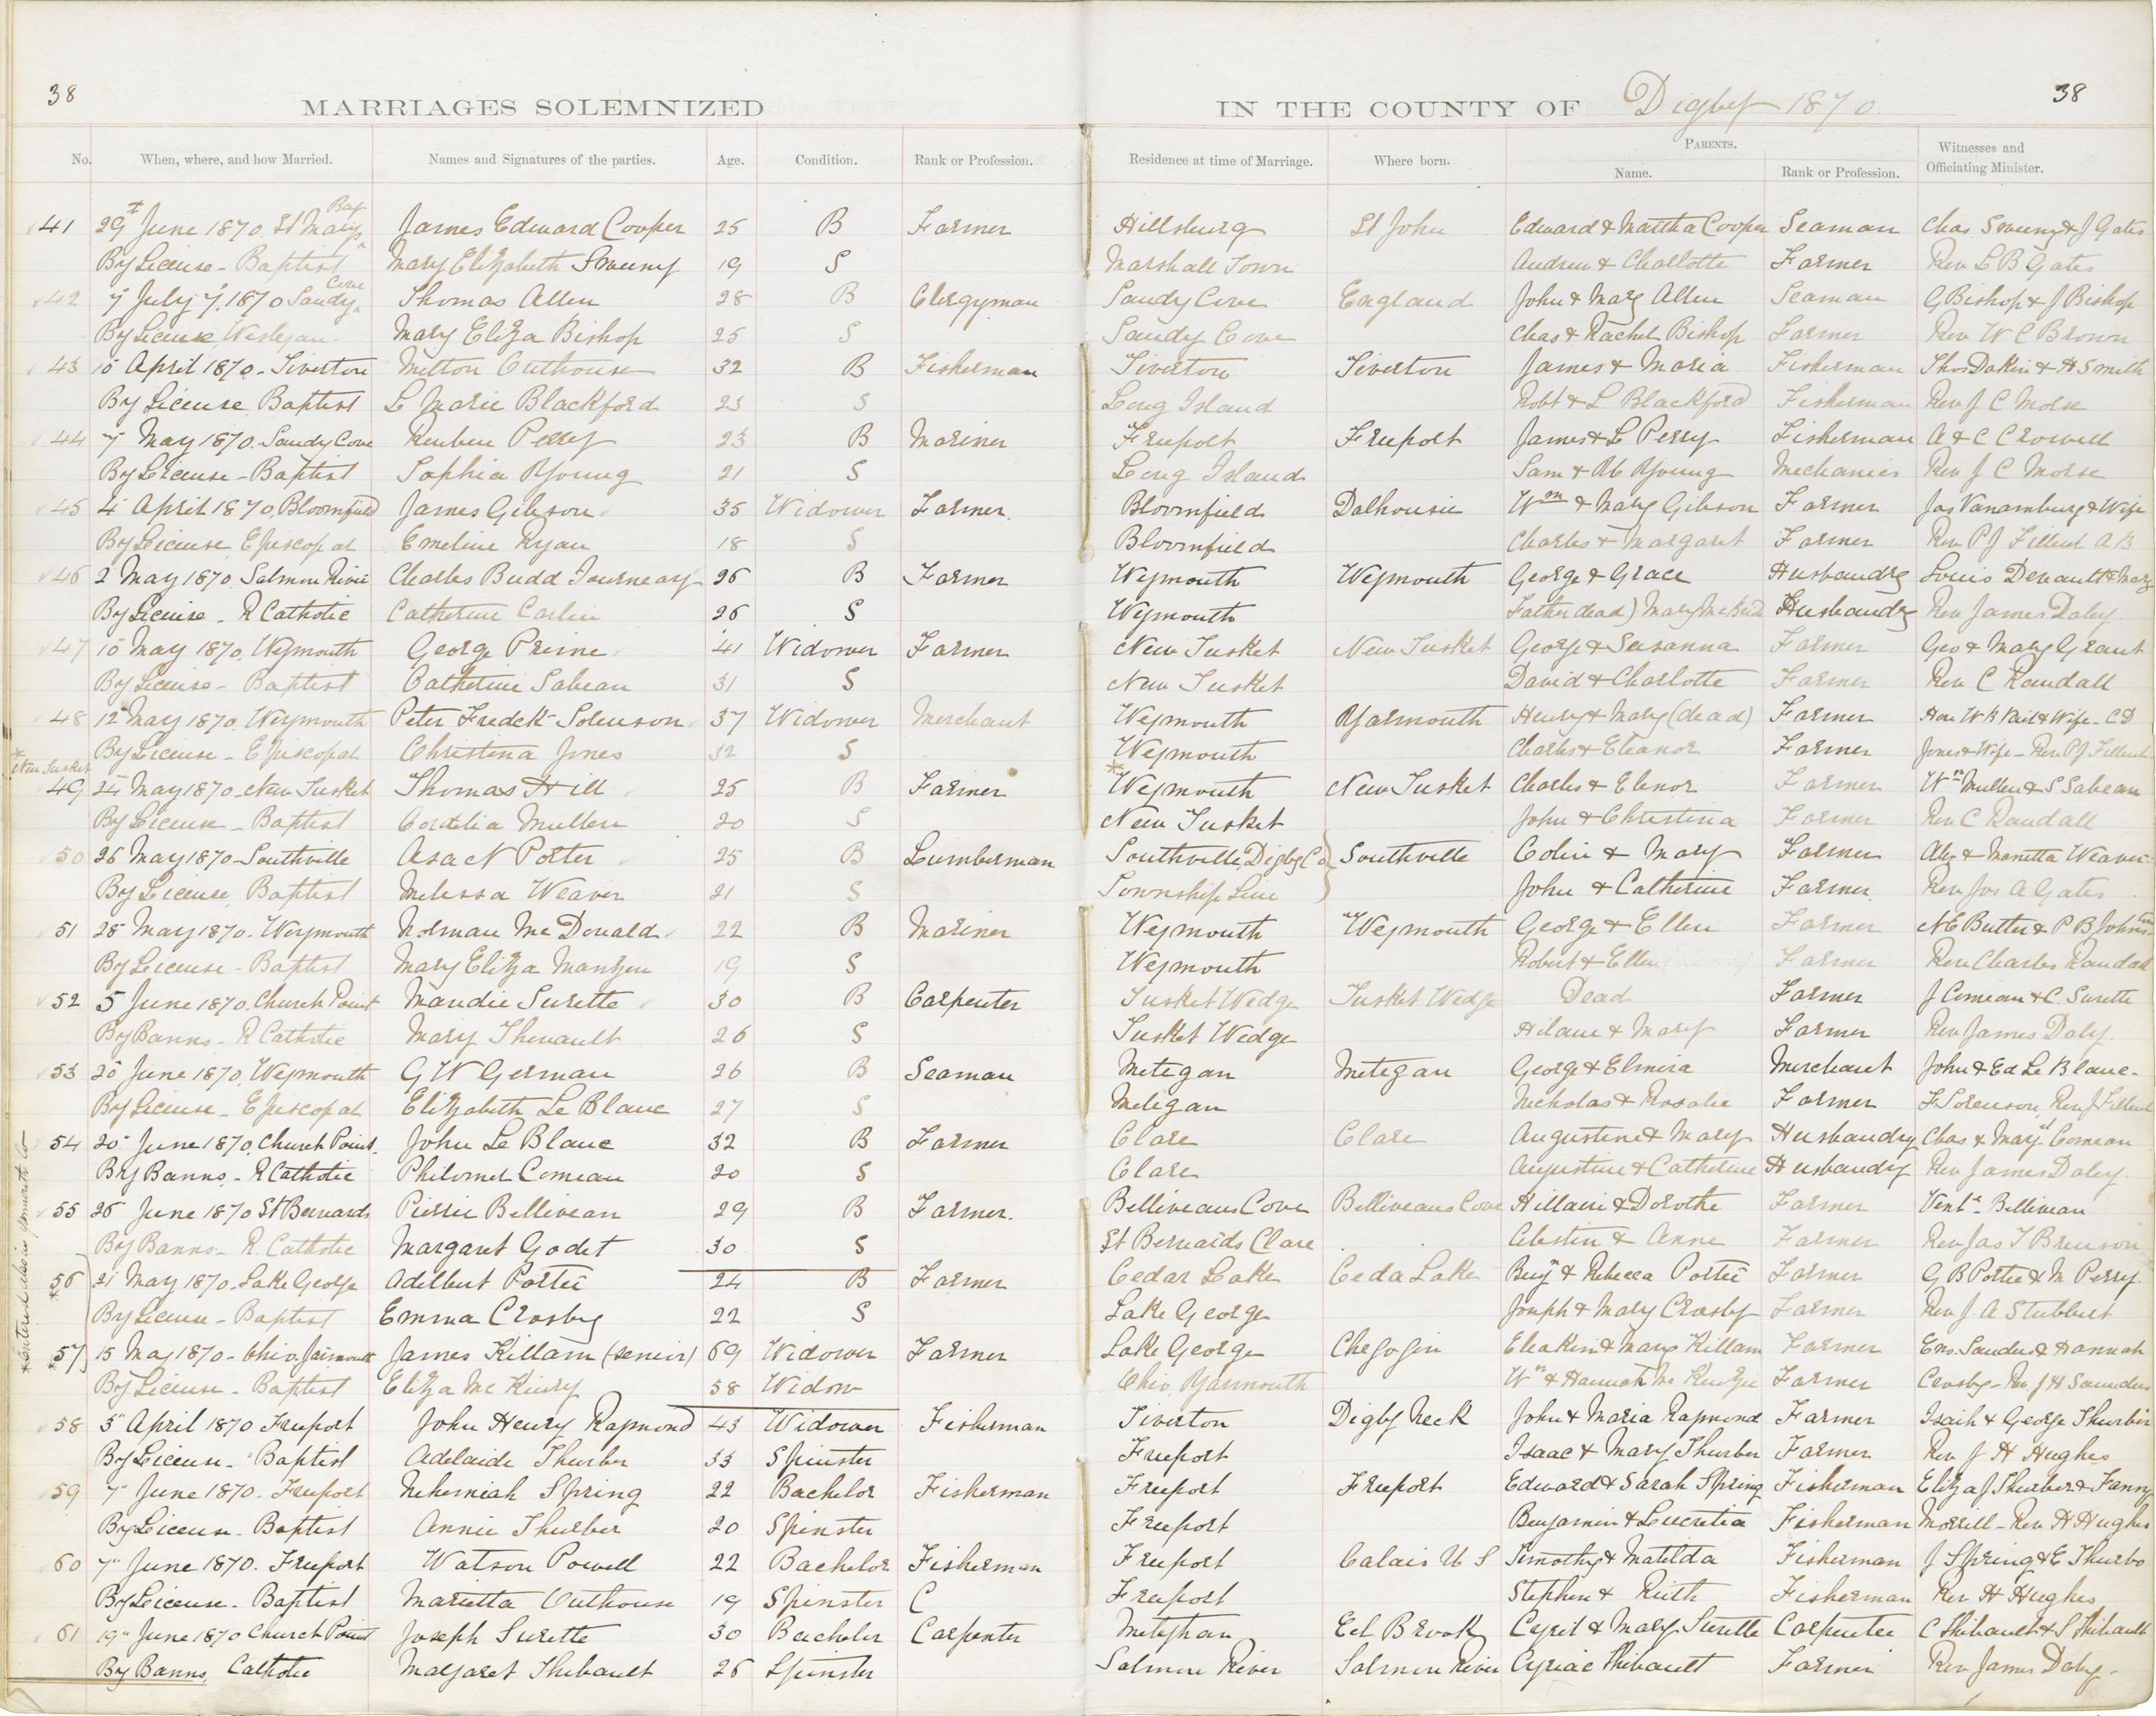 38
38
MARRIAGES SOLEMNIZED IN THE COUNTY OF Digby 1870.
No. When, where, and how Married. Names and Signatures of the parties. Age. Condition. Rank or Profession. Residence at time of Marriage. Where born. PARENTS. Name. Rank or Profession. Witnesses and Officiating Minister.
41 29 June 1870, St Marys Bay James Edward Cooper 25 B Farmer Hillsburg St John Edward & Martha Cooper Seaman Chas Sweeny & J Gates
By License - Baptist Mary Elizabeth Sweeny 19 S Marshall Town Andrew & Charlotte Farmer Rev L B Gates
42 7 July 1870 Sandy Cove Thomas Allen 28 B Clergyman Sandy Cove England John & Mary Allen Seaman G Bishop & J Bishop
By License, Wesleyan Mary Eliza Bishop 25 S Sandy Cove Chas & Rachel Bishop Farmer Rev W C Brown
43 10 April 1870 - Tiverton Milton Outhouse 32 B Fisherman Tiverton Tiverton James & Maria Fisherman Thos Dakin & H Smith
By License, Baptist L Marie Blackford 23 S Long Island Robt & L Blackford Fisherman Rev J C Morse
44 7 May 1870. Sandy Cove Reuben Perry 23 B Mariner Freeport Freeport James & L Perry Fisherman A & C Crowell
By License - Baptist Sophia Young 21 S Long Island Sam & M Young Mechanics Rev J C Morse
45 4 April 1870, Bloomfield James Gibson 35 Widower Farmer. Bloomfield Dalhousie Wm & Mary Gibson Farmer Jas Vanamburg & Wife
By License, Episcopal Emeline Ryan 18 S Bloomfield Charles & Margaret Farmer Rev P J Filleul A B
46 2 May 1870, Salmon River Charles Budd Journeay 26 B Farmer Weymouth Weymouth George & Grace Husbandry Louis Denault & Mary
By License - R Catholic Catherine Carlin 26 S Weymouth Father dead) Mary Husbandry Rev James Daley
47 10 May 1870, Weymouth George Prime 41 Widower Farmer New Tusket New Tusket George & Susanna Farmer Geo & Mary Grant
By License - Baptist Catherine Sabean 31 S New Tusket David & Charlotte Farmer Rev C Randall
48 12 May 1870, Weymouth Peter Fredck Sorenson 37 Widower Merchant Weymouth Yarmouth Henry & Mary (dead) Farmer Hon W B Vail & Wife - C D
By License - Episcopal Christina Jones 32 S Weymouth Charles & Eleanor Farmer Jones & Wife - Rev P J Filleul
* New Tusket
49 24 May 1870 - New Tusket Thomas Hill 25 B Farmer * Weymouth New Tusket Charles & Elenor Farmer Wm Mullen & S Sabean
By License - Baptist Cordelia Mullen 20 S New Tusket John & Christina Farmer Rev C Randall
50 26 May 1870 - Southville Asa N Porter 25 B Lumberman Southville, Digby Co Southville Colin & Mary Farmer Alex & Manetta Weaver
By License, Baptist Melissa Weaver 21 S Township Line John & Catherine Farmer Rev Jos A Gates
51 28 May 1870. Weymouth Norman McDonald 22 B Mariner Weymouth Weymouth George & Ellen Farmer N E Butler & P B Johnston
By License - Baptist Mary Eliza Manzer 19 S Weymouth Robert & Ellen Farmer Rev Charles Randall
52 5 June 1870. Church Point Mandie Surette 30 B Carpenter Tusket Wedge Tusket Wedge Dead Farmer J Comeau & C. Surette
By Banns - R Catholic Mary Thenault 26 S Tusket Wedge Hilaue & Mary Farmer Rev James Daly
53 20 June 1870, Weymouth G W German 26 B Seaman Metegan Metegan George & Elmira Merchant John & Ed Le Blanc -
By License - Episcopal Elizabeth Le Blanc 27 S Metegan Nicholas & Rosalie Farmer F Sorenson, Rev J Filleul
54 20 June 1870, Church Point. John Le Blanc 32 B Farmer Clare Clare Augustine & Mary Husbandry Chas & Mary Comeau
By Banns - R Catholic Philomel Comeau 20 S Clare Augustine & Catherine Husbandry Rev James Daley.
55 26 June 1870 St Bernards Pierrie Belliveau 29 B Farmer. Belliveaus Cove Belliveaus Cove Hillaire & Dorothe Farmer Belliveau
By Banns - R. Catholic Margaret Godet 30 S St Bernards Clare Celestin & Anne Farmer Rev Jas T
*56 21 May 1870 - Lake George Adelbert Porter 24 B Farmer Cedar Lake Ceda Lake Benj & Rebecca Porter Farmer G B Porter & M Perry
By License - Baptist Emma Crosby 22 S Lake George Joseph & Mary Crosby Farmer Rev J. A Stubbert
*57 15 May 1870 - Ohio, Yarmouth James Killam (senior) 69 Widower Farmer Lake George Chegogin Eleakim & Mary Killam Farmer Saunders & Hannah
By License - Baptist Eliza Mc Kinry 58 Widow Ohio, Yarmouth Wm & Hannah Mc Kenzie Farmer Crosby - Rev J H Saunders
* entered also in Yarmouth Co
58 5 April 1870 Freeport John Henry Raymond 43 Widower Fisherman Tiverton Digby Neck John & Maria Raymond Farmer Isaih & George Thurber
By License - Baptist Adelaide Thurber 33 Spinster Freeport Isaac & Mary Thurber Farmer Rev J H Hughes
59 7" June 1870. Freeport Nehemiah Spring 22 Bachelor Fisherman Freeport Freeport Edward & Sarah Spring Fisherman Eliza J Thurber & Fanny
By License - Baptist Annie Thurber 20 Spinster Freeport Benjamin & Lucretia Fisherman Morrill - Rev H Hughes
60 7" June 1870. Freeport Watson Powell 22 Bachelor Fisherman Freeport Calais U S Timothy & Matilda Fisherman J Spring & E Thurbo
By License - Baptist Marietta Outhouse 19 Spinster C Freeport Stephen & Ruth Fisherman Rev H Hughes
61 19" June 1870 Church Point Joseph Surette 30 Bachelor Carpenter Meteghan Eel Brook Cyril & Mary Surette Carpenter C Thibault & S Thibault
By Banns, Catholic Margaret Thibault 26 Spinster Salmon River Salmon River Cyriac Thibault Farmer Rev James Daley -